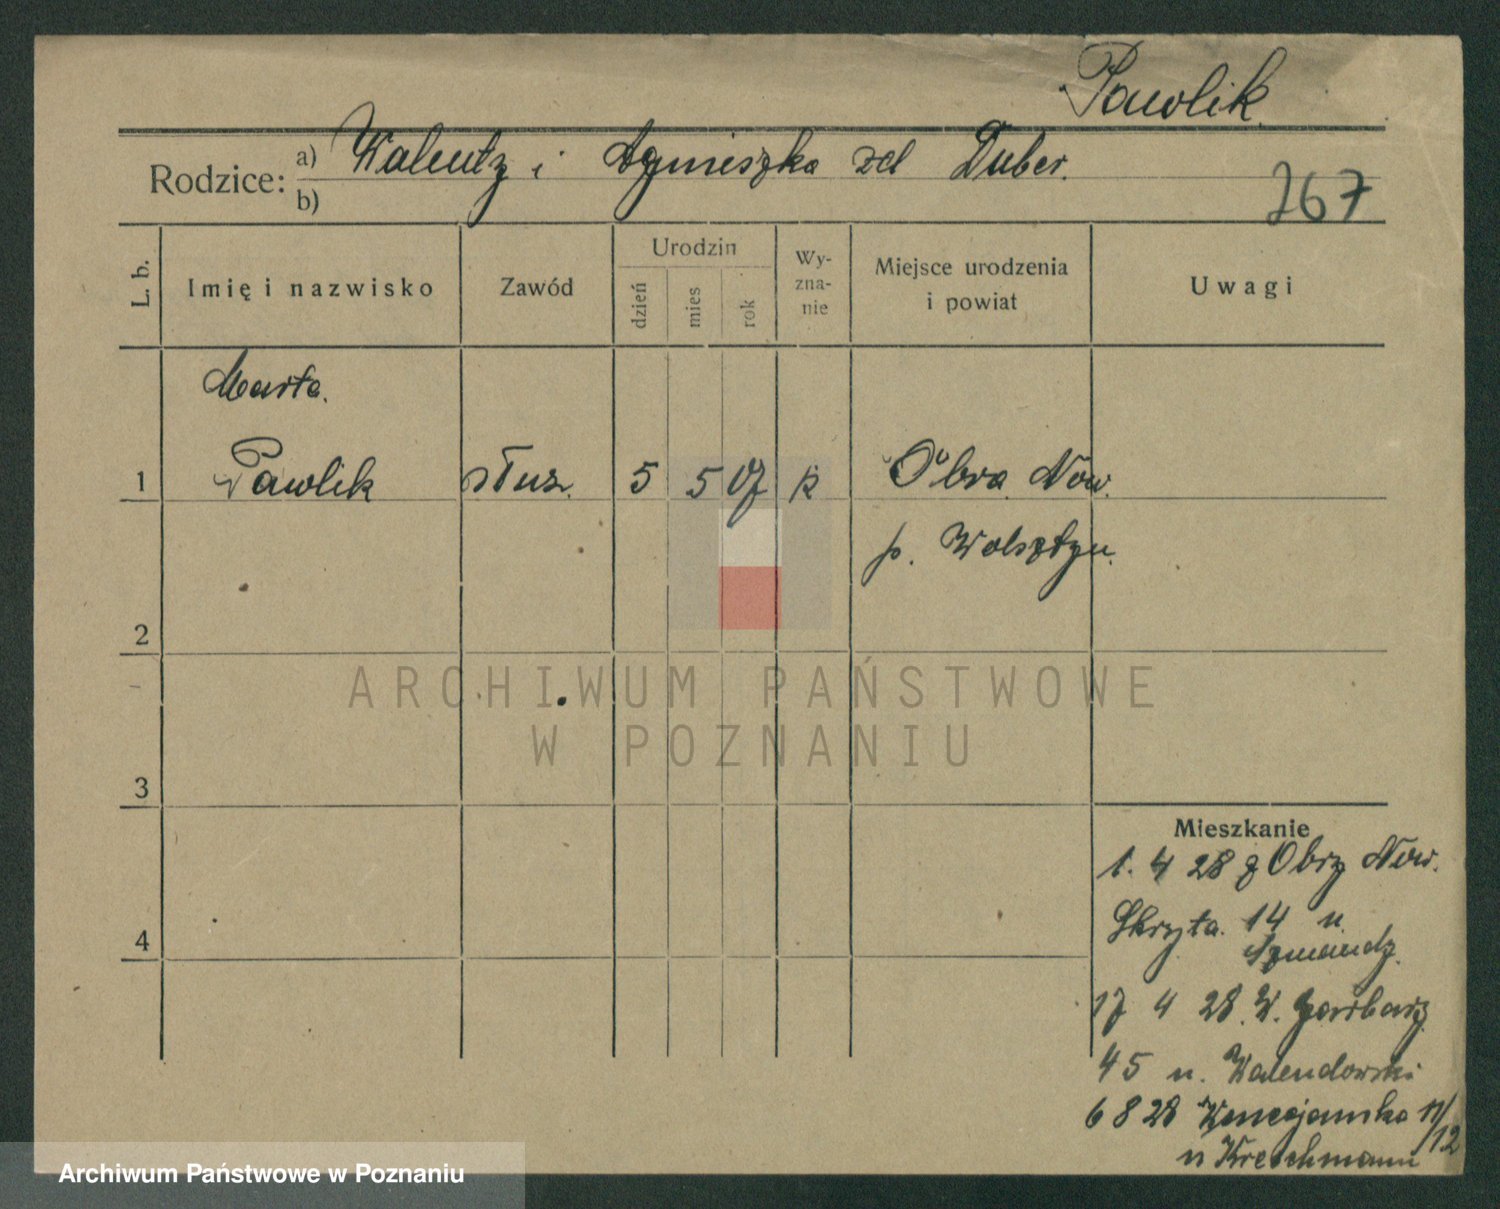 Pawlik
Rodzice:
a) Walenty i Agnieszka zd Duber.
b)
767
L. b.
Imię i nazwisko
Zawód
Urodzin
dzień
mies
rok
Wy-
zna-
nie
Miejsce urodzenia
i powiat
Uwagi
Marta.
1 Pawlik służ. 5 5 07 k Obra Now.
p. Wolsztyn.
2
3
4
Mieszkanie
1. 4 28 z Obry Now.
Skryta. 14 u
17 4 28. W. Garbary
45 u. Walendowski
6 8 28 Wenecjańska 11/12
u Kretschmann
ARCHIWUM PAŃSTWOWE
W POZNANIU
Archiwum Państwowe w Poznaniu